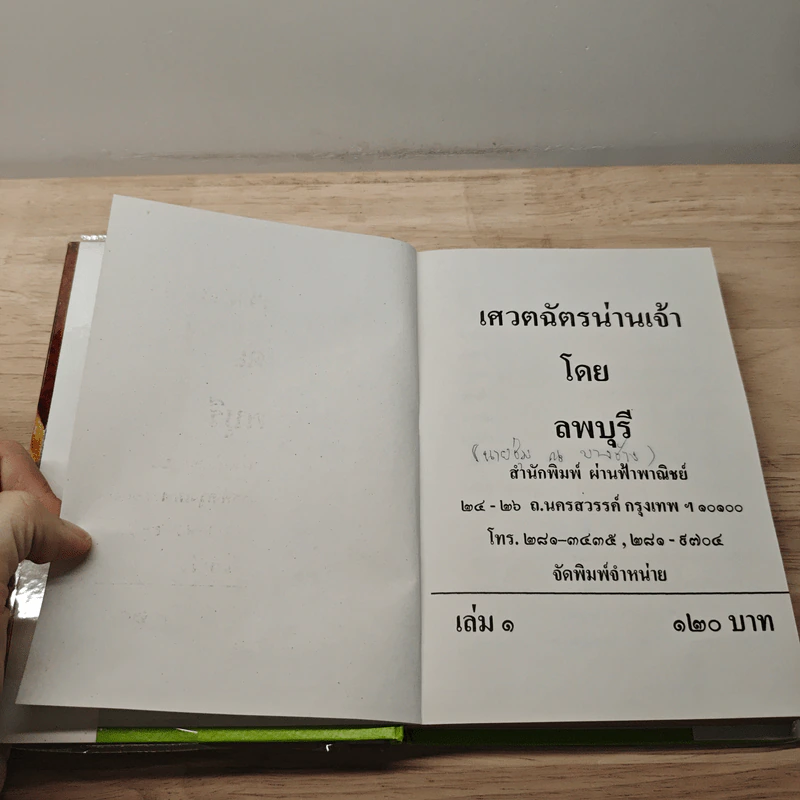 เศวตฉัตรน่านเจ้า
โดย
ลพบุรี
(นายชุ่ม ณ บางช้าง)
สำนักพิมพ์ ผ่านฟ้าพาณิชย์
๒๔ - ๒๖ ถ.นครสวรรค์ กรุงเทพ ฯ ๑๐๑๐๐
โทร. ๒๘๑-๓๔๓๕ , ๒๘๑ - ๙๗๐๔
จัดพิมพ์จำหน่าย
เล่ม ๑ ๑๒๐ บาท